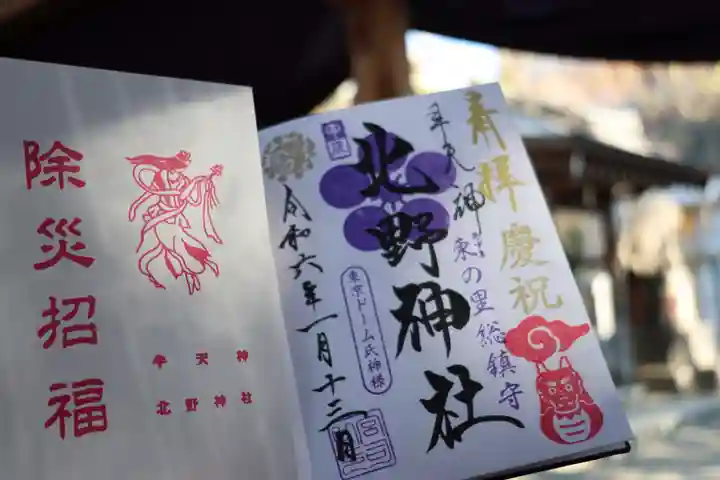 除災招福
牛天神
北野神社
奉拝 慶祝
牛天神
東の里総鎮守
北野神社
東京ドーム氏神様
令和六年一月十三日